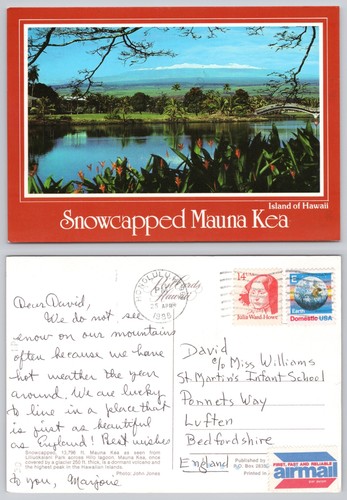 Island of Hawaii
Snowcapped Mauna Kea
HONOLULU
PM
25 APR
1988
14
Julia Ward Howe
E
Earth
Domestic USA
Dear David,
We do not see
snow on our mountains
often because we have
hot weather the year
around. We are lucky
to live in a place that
is just as beautiful
as England! Best wishes
to you, Marjorie
Snowcapped, 13,796 ft. Mauna Kea as seen from
Liliuokalani Park across Hilo lagoon. Mauna Kea, once
covered by a glacier 250 ft. thick, is a dormant volcano and
the highest peak in the Hawaiian Islands.
Photo: John Jones
David
c/o Miss Williams
St Martin's Infant School
Pennets Way
Luften
Bedfordshire
England
Published by
Box
Printed in
FIRST, FAST AND RELIABLE
airmail
par avion